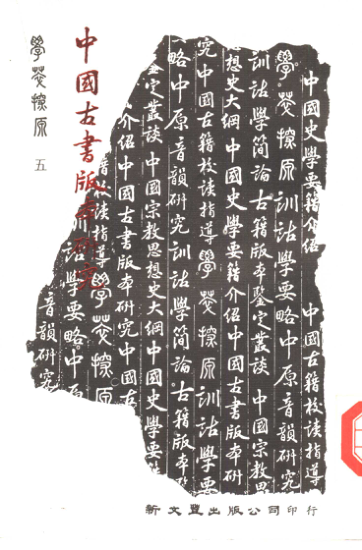 中國史學要籍介紹 中國古籍校讀指導
學 原訓詁學要略中原音韻研究
訓詁學簡論古籍版本鑒定叢談 中國宗教思
想史大綱中國史學要籍介紹中國古書版本研
究中國古籍校讀指導學 原訓詁學要
略中原音韻研究訓詁學簡論古籍版本
鑒定叢談中國宗教思想史大綱中國史學要
介紹中國古書版本研究中國古
讀指導學 原
詁學要略中原
音韻研究
中國古書版本研究
學 原 五
新文豐出版公司印行